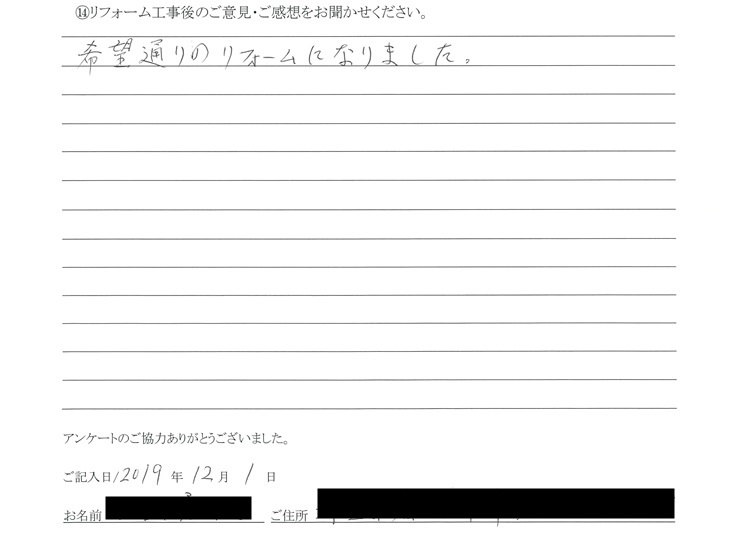 ⑭リフォーム工事後のご意見・ご感想をお聞かせください。
希望通りのリフォームになりました。
アンケートのご協力ありがとうございました。
ご記入日/2019年12月1日
お名前 ご住所